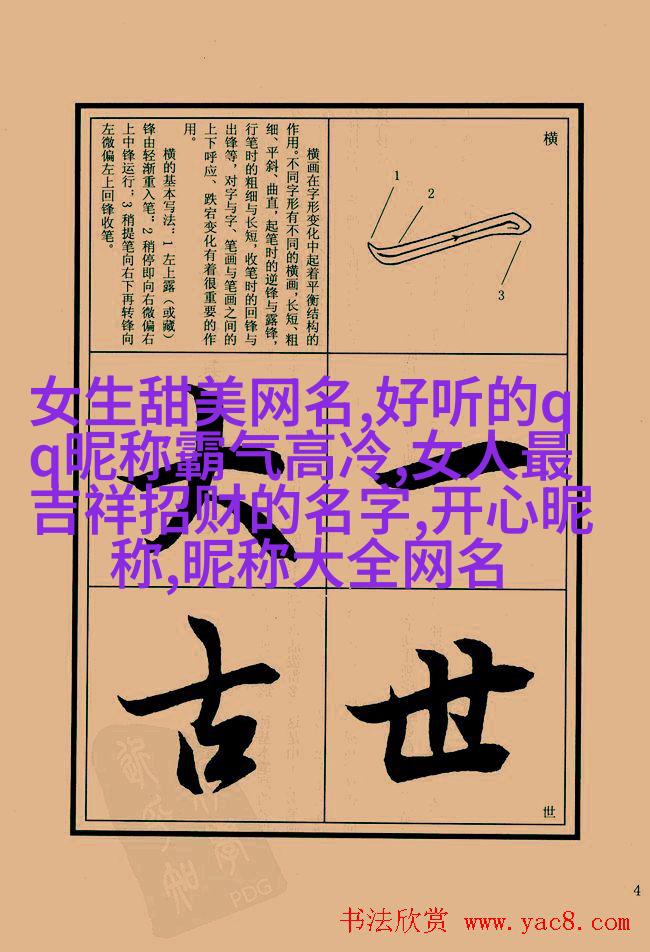 横
1
2
3
横画在字形变化中起着平衡结构的
作用。不同字形有不同的横画,长短、粗
细、平斜、曲直,起笔时的逆锋与露锋,
行笔时的粗细与长短,收笔时的回锋与
出锋等,对字与字、笔画与笔画之间的
上下呼应、跌宕变化有着很重要的作
用。
横的基本写法:1 左上露(或藏)
锋由轻渐重入笔;2 稍停即向右微偏右
上中锋运行;3 稍提笔向右下再转锋向
左微偏左上回锋收笔。
女生甜美网名,好听的q
q昵称霸气高冷,女人最
吉祥招财的名字,开心昵
称,昵称大全网名
一
大
世
古
世
PDG
4
书法欣赏 www.yac8.com